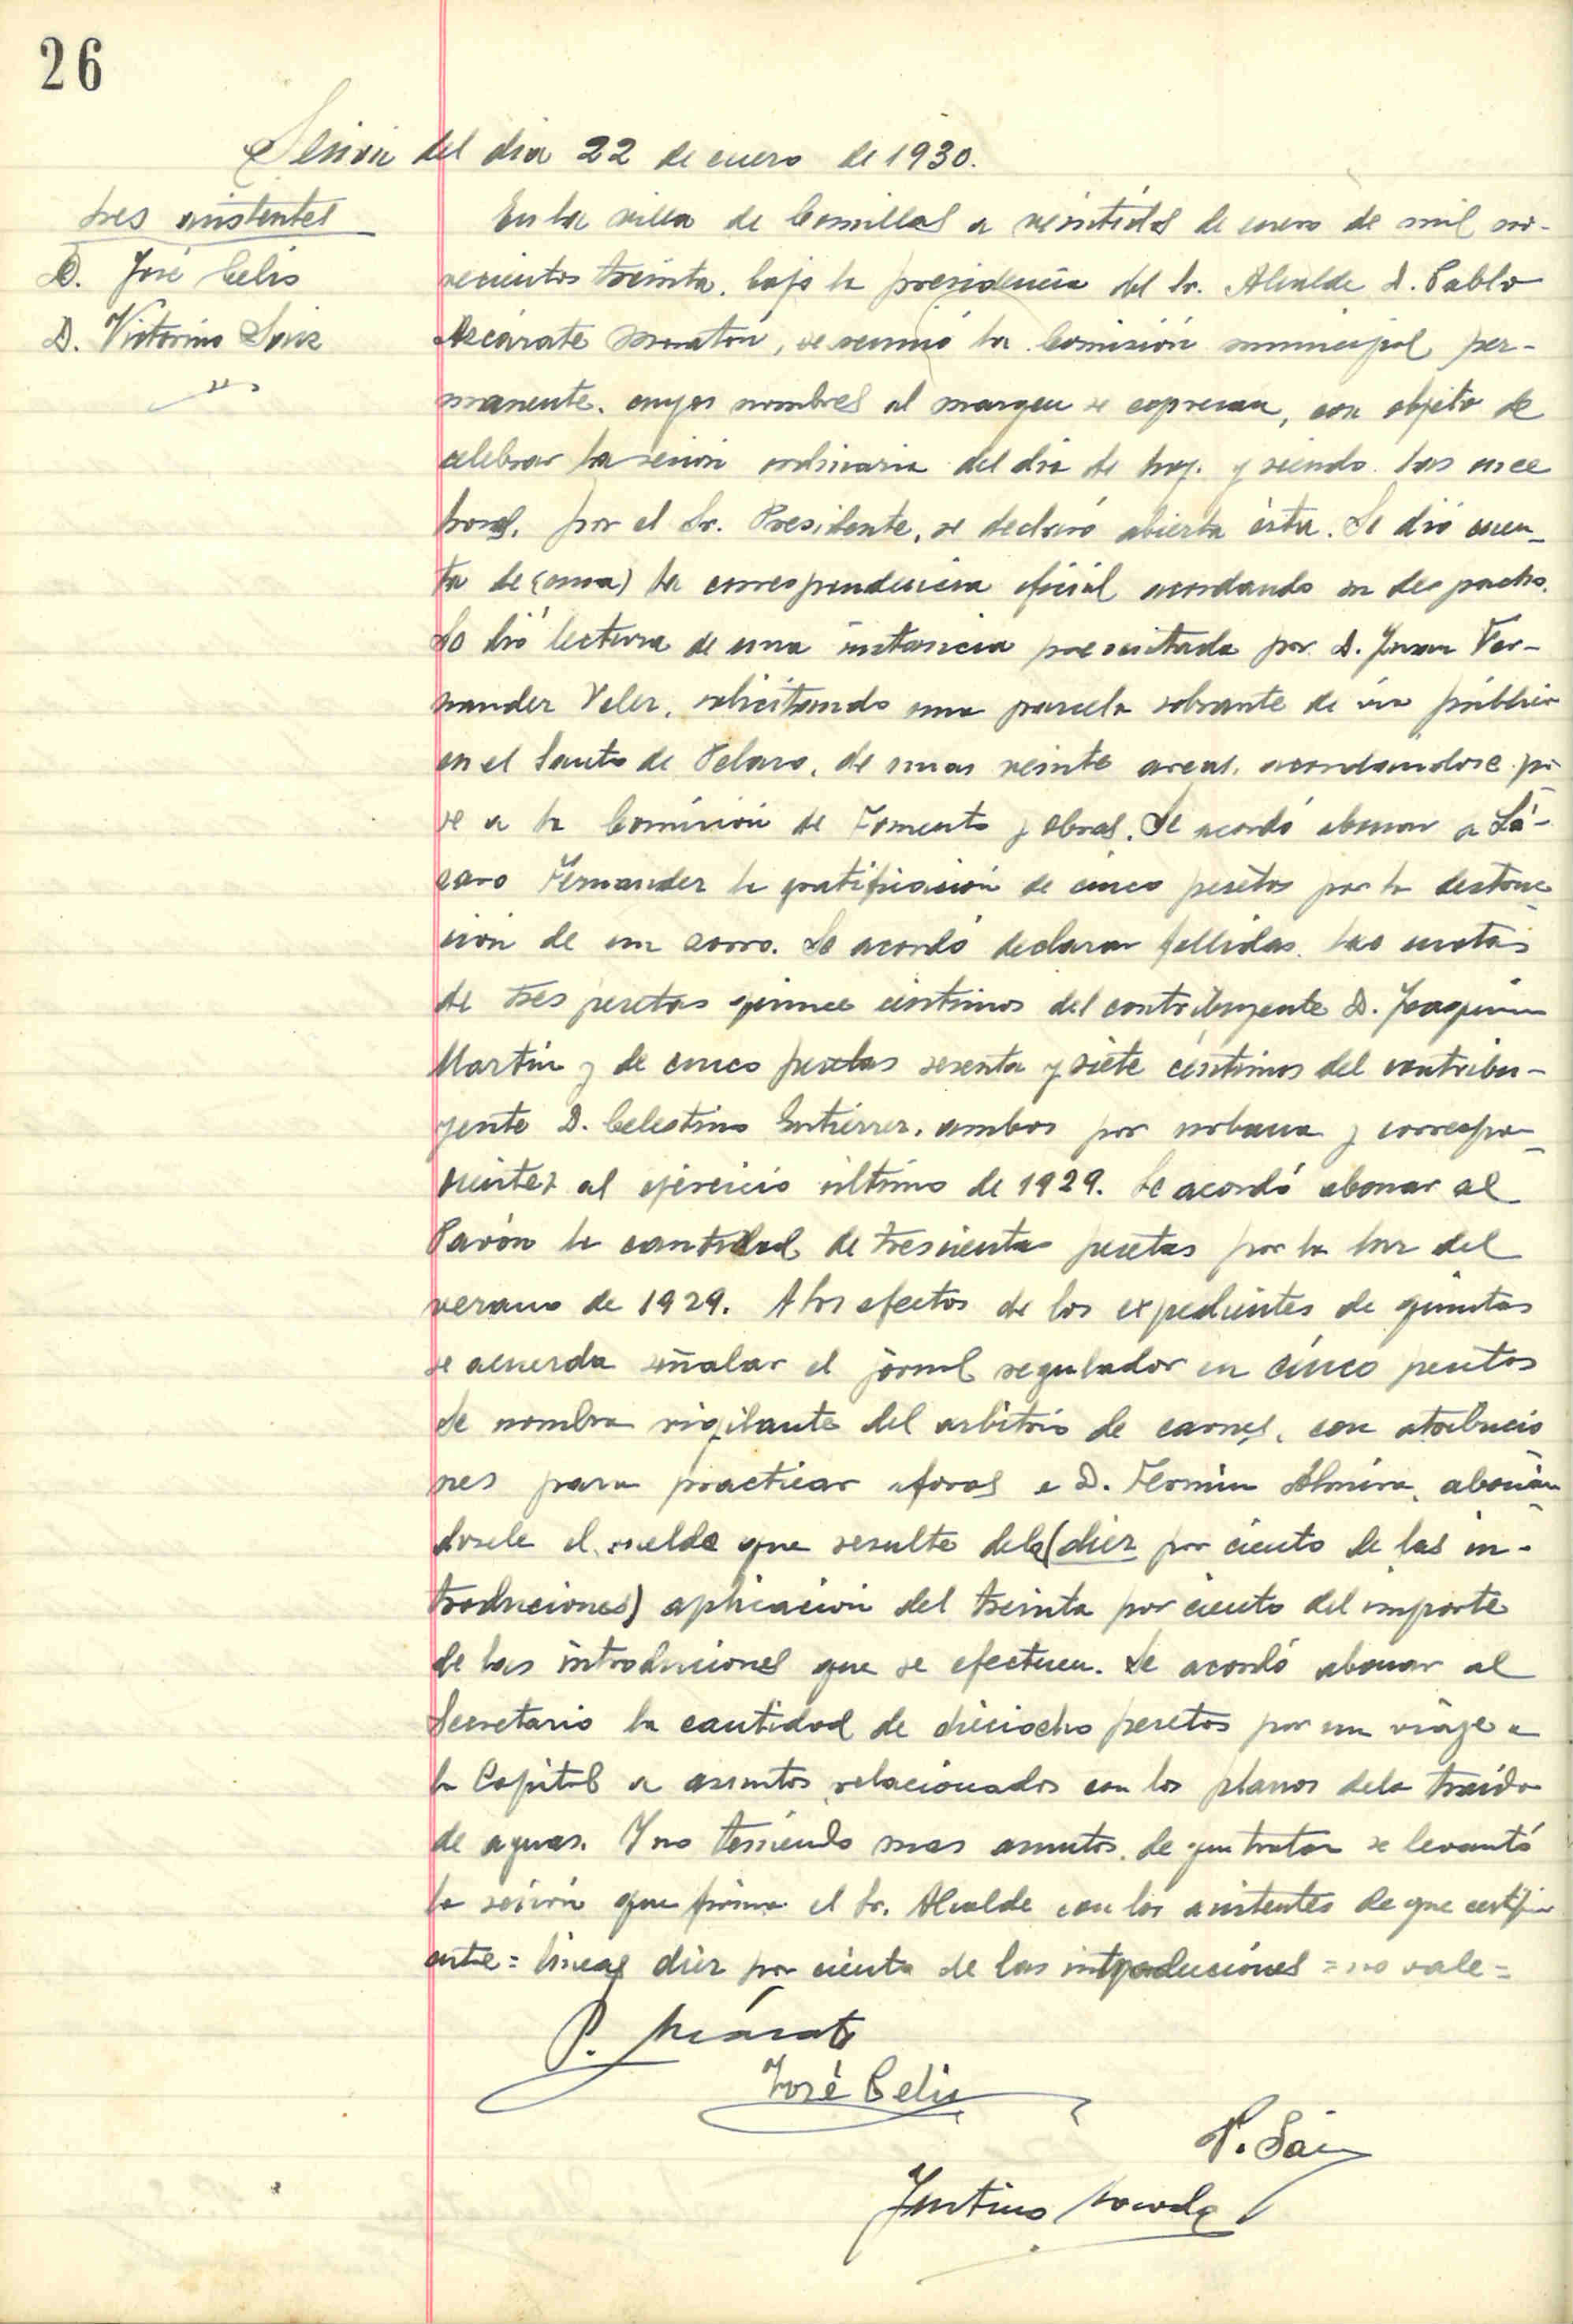 26
Sesión del dia 22 de enero de 1930.
Sres asistentes
D. José Celis
D. Victorino Sainz
En la villa de Comillas a veintidos de enero de mil no-
vecientos treinta. bajo la presidencia del Sr. Alcalde D. Pablo
Azcárate Monatón, se reunió la Comisión municipal per-
manente. cuyos nombres al margen se expresan, con objeto de
celebrar la sesión ordinaria del dia de hoy. y siendo las once
horas. por el Sr. Presidente, se declaró abierta ésta. Se dió cuen-
ta de (una) la correspondencia oficial acordando su despacho.
Se dió lectura de una instancia presentada por D. Juan Fer-
nandez Velez, solicitando una parcela sobrante de via pública
en el Santo de Velaro, de unas veinte areas, acordandose pa-
se a la Comisión de Fomento y obras. Se acordó abonar a Lá-
zaro Fernandez la gratificación de cinco pesetas por la destruc-
ción de un zorro. Se acordó declarar fallidas las cuotas
de tres pesetas quince centimos del contribuyente D. Joaquin
Martin y de cinco pesetas sesenta y siete centimos del contribu-
yente D. Celestino Gutierrez, ambos por urbana y correspon-
dientes al ejercicio último de 1929. Se acordó abonar al
Pavón la cantidad de trescientas pesetas por la luz del
verano de 1929. A los efectos de los expedientes de quintas
se acuerda señalar el jornal regulador en cinco pesetas
Se nombra vigilante del arbitrio de carnes, con atribucio-
nes para practicar aforos a D. Fermin abonán-
dosele el sueldo que resulte dela (diez por ciento de las in-
troduciones) aplicación del treinta por ciento del importe
de las introduciones que se efectuen. Se acordó abonar al
Secretario la cantidad de dieciocho pesetas por un viaje a
la Capital a asuntos relacionados con los planos dela traida
de aguas. Y no teniendo mas asuntos de que tratar se levantó
la sesión que firma el Sr. Alcalde con los asistentes de que certifico
entre = lineas diez por ciento de las introduciones = no vale =
P. Azcárate
José Celis
V. Sainz
Justino